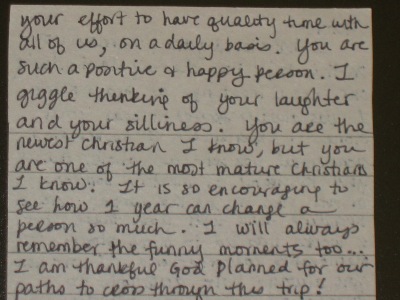 your effort to have quality time with
all of us, on a daily basis. You are
such a positive & happy person. I
giggle thinking of your laughter
and your silliness. You are the
newest Christian I know, but you
are one of the most mature Christians
I know. It is so encouraging to
see how 1 year can change a
person so much. I will always
remember the funny moments too...
I am thankful God planned for our
paths to cross through this trip!